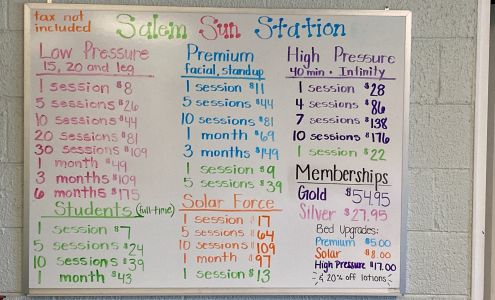 tax not
included
Salem Sun Station
Low Pressure
15, 20 and leg
1 session $8
5 sessions $26
10 sessions $44
20 sessions $81
30 sessions $109
1 month $49
3 months $109
6 months $175
Students (full-time)
1 session $7
5 sessions $24
10 sessions $39
1 month $43
Premium
facial, standup
1 session $11
5 sessions $44
10 sessions $81
1 month $69
3 months $149
1 session $9
5 sessions $39
Solar Force
1 session $17
5 sessions $64
10 sessions $109
1 month $97
1 session $13
High Pressure
40 min • Infinity
1 session $28
4 sessions $86
7 sessions $138
10 sessions $176
1 session $22
Memberships
Gold $54.95
Silver $27.95
Bed Upgrades:
Premium $5.00
Solar $8.00
High Pressure $17.00
& 20% off lotions